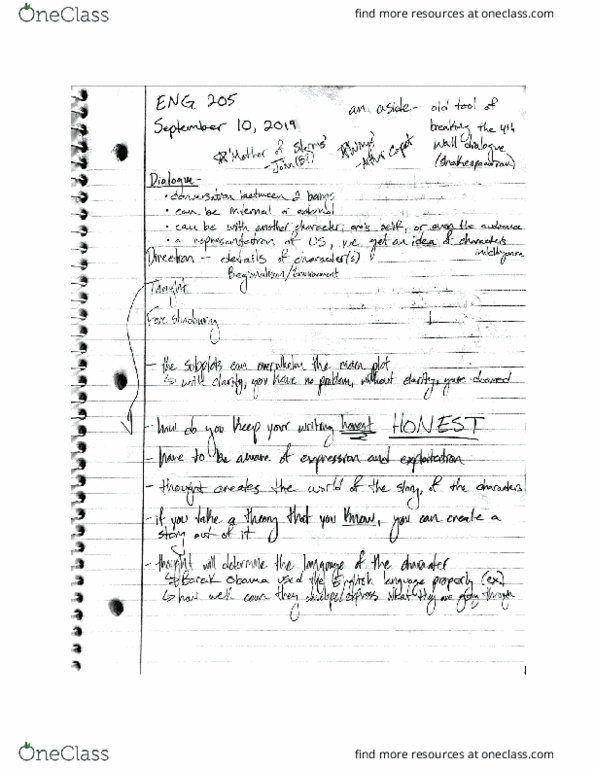 OneClass
find more resources at oneclass.com
ENG 205
September 10, 2019
an aside - old tool of
breaking the 4th
wall dialogue
(shakespearian)
"Mother of Storms"
- John (B?)
"Wings"
- Arthur Kopit
Dialogue -
• conversation between 2 beings
• can be internal or external
• can be with another character, one's self, or even the audience
• a representation of US, i.e. get an idea of characters
intelligence
Direction - details of character(s)
Regionalism/Environment
Thought
Foreshadowing
- the subplots can overwhelm the main plot
↳ with clarity, you have no problem, without clarity, you're doomed
- how do you keep your writing honest HONEST
- have to be aware of expression and exploitation
- thought creates the world of the story, of the characters
- if you take a theory that you know, you can create a
story out of it
- thought will determine the language of the character
↳ Barak Obama used the English language properly (ex)
↳ how well can they express what they are going through
OneClass
find more resources at oneclass.com